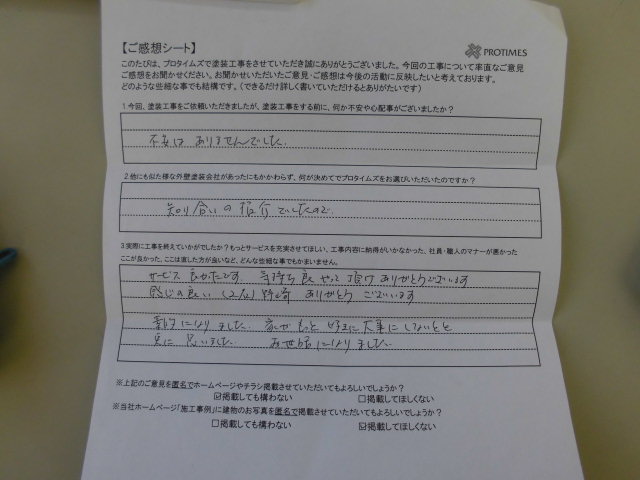 【ご感想シート】
PROTIMES
このたびは、プロタイムズで塗装工事をさせていただき誠にありがとうございました。今回の工事について率直なご意見
ご感想をお聞かせください。お聞かせいただいたご意見・ご感想は今後の活動に反映したいと考えております。
どのような些細な事でも結構です。（できるだけ詳しく書いていただけるとありがたいです）
1.今回、塗装工事をご依頼いただきましたが、塗装工事をする前に、何か不安や心配事がございましたか？
不安は ありませんでした.
2.他にも似た様な外壁塗装会社があったにもかかわらず、何が決めてでプロタイムズをお選びいただいたのですか？
知り合いの紹介でしたので.
3.実際に工事を終えていかがでしたか？もっとサービスを充実させてほしい、工事内容に納得がいかなかった、社員・職人のマナーが悪かった
ここが良かった、ここは直した方が良いなど、どんな些細な事でもかまいません。
サービス 良かったです. 気持ち良 やって頂け ありがとうございます
感じの良い ありがとう ございます
になりました. 家が もっと 大事に しないと
更に 思いました. お世話になりました.
※上記のご意見を匿名でホームページやチラシ掲載させていただいてもよろしいでしょうか？
☑掲載しても構わない □掲載してほしくない
※当社ホームページ「施工事例」に建物のお写真を匿名で掲載させていただいてもよろしいでしょうか？
□掲載しても構わない ☑掲載してほしくない